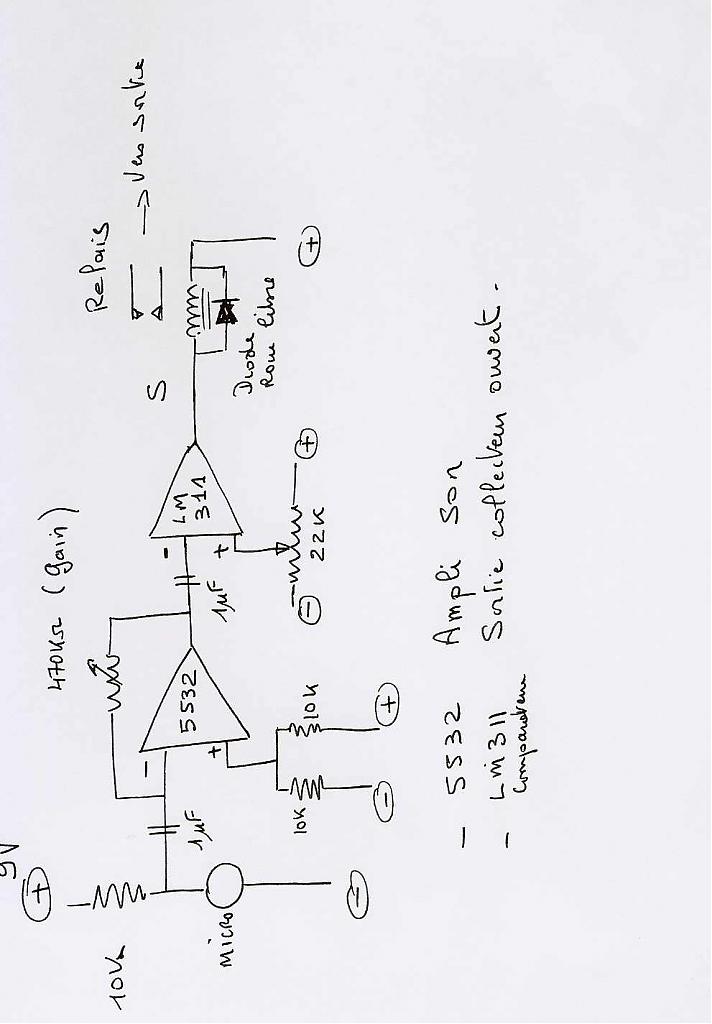 9V
+
10K
micro
-
1µF
-
+
5532
470KΩ (gain)
10K
10K
-
+
1µF
-
+
LM
311
22K
-
+
S
Relais
→ Vers sortie
Diode
Roue libre
+
- 5532 Ampli Son
- LM311 Sortie collecteur ouvert.
Comparateur